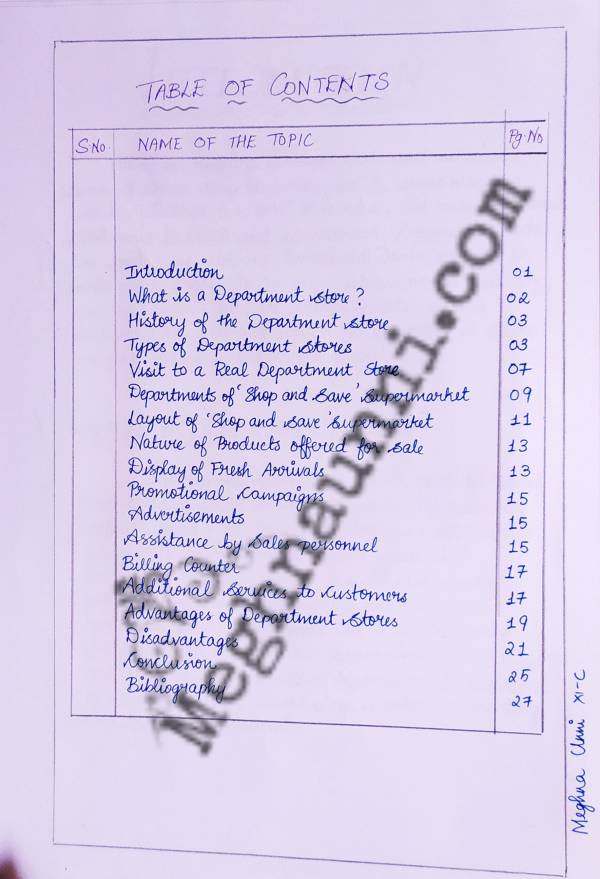 TABLE OF CONTENTS
S.No. NAME OF THE TOPIC Pg.No
Introduction 01
What is a Department Store? 02
History of the Department Store 03
Types of Department Stores 03
Visit to a Real Department Store 07
Departments of 'Shop and Save' Supermarket 09
Layout of 'Shop and Save' Supermarket 11
Nature of Products offered for Sale 13
Display of Fresh Arrivals 13
Promotional Campaigns 15
Advertisements 15
Assistance by Sales personnel 15
Billing Counter 17
Additional Services to Customers 17
Advantages of Department Stores 19
Disadvantages 21
Conclusion 25
Bibliography 27
Meghna Unni XI-C
Meghnaunni.com